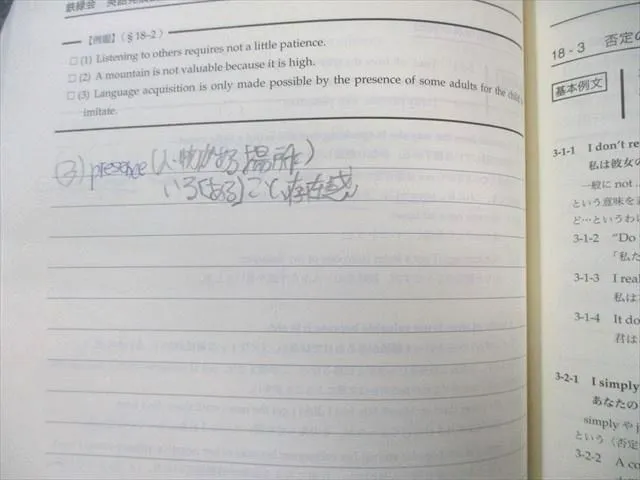 鉄緑会
【例題】(§18-2)
□(1) Listening to others requires not a little patience.
□(2) A mountain is not valuable because it is high.
□(3) Language acquisition is only made possible by the presence of some adults for the child
imitate.
(3) presence (人・物がある場所に)
いる[ある]こと、存在感
18-3 否定の
基本例文
3-1-1 I don't re
私は彼女の
一般に not
という意味を
ど…というわ
3-1-2 "Do
「私た
3-1-3 I real
私は
3-1-4 It do
君は
3-2-1 I simply
あなたの
simply や j
という〈否定
3-2-2 A co